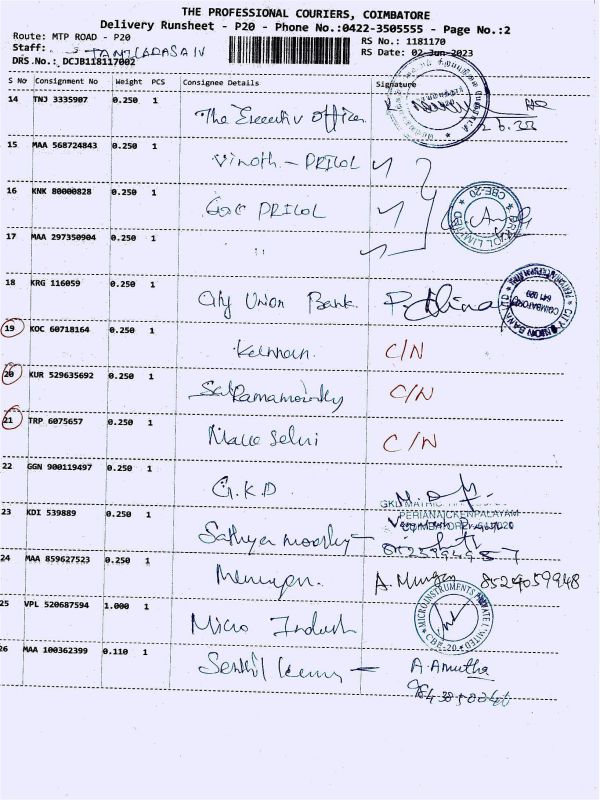 THE PROFESSIONAL COURIERS, COIMBATORE
Delivery Runsheet - P20 - Phone No.:0422-3505555 - Page No.:2
Route: MTP ROAD - P20
RS No.: 1181170
Staff:
RS Date: 02-Jun-2023
DRS.No.: DCJB118117002
S No Consignment No Weight PCS Consignee Details Signature
14 TNJ 3335907 0.250 1
The Executiv officer
15 MAA 568724843 0.250 1
Vinoth - PRICOL
16 KNK 80000828 0.250 1
PRICOL
17 MAA 297350904 0.250 1
"
18 KRG 116059 0.250 1
City Union Bank
19 KOC 60718164 0.250 1
Kannan. C/N
20 KUR 529635692 0.250 1
C/N
21 TRP 6075657 0.250 1
C/N
22 GGN 900119497 0.250 1
G.K.D
PERIANAICKENPALAYAM
23 KDI 539889 0.250 1
COIMBATORE
24 MAA 859627523 0.250 1
A. Murugan 8524059948
25 VPL 520687594 1.000 1
Micro
26 MAA 100362399 0.110 1
Senthil A. Amutha